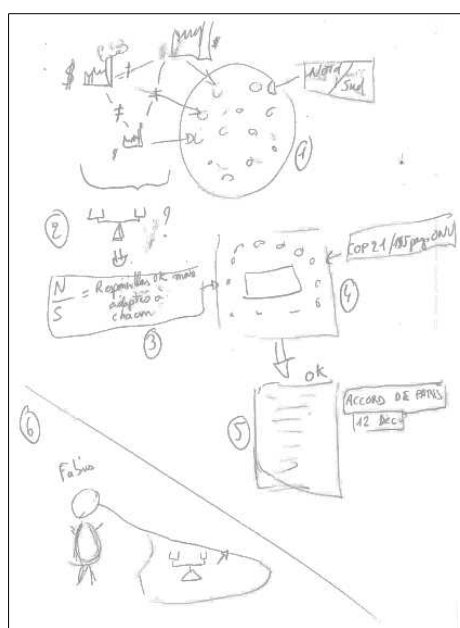 $
$
Nord/
Sud
≠
≠
≠
$
1
2
?
N
S
= Responsables ok mais
adaptés à
chacun
3
COP21/195 pays ONU
4
ok
ACCORD DE PARIS
12 Déc
5
6
Fabius